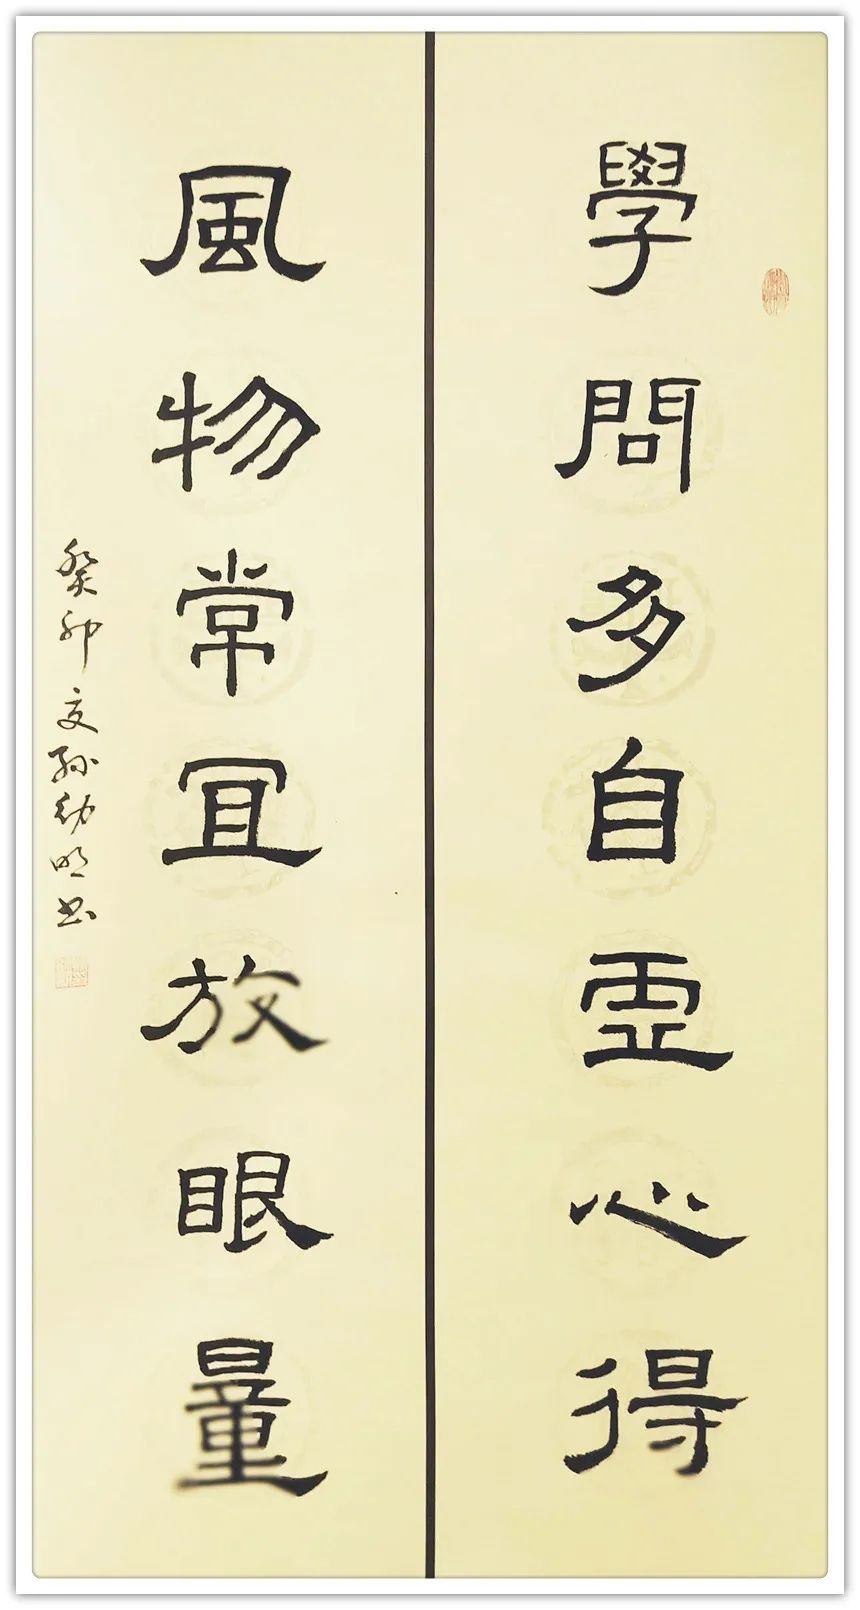 學問多自虛心得
風物常冝放眼量
癸卯夏孫幼明书